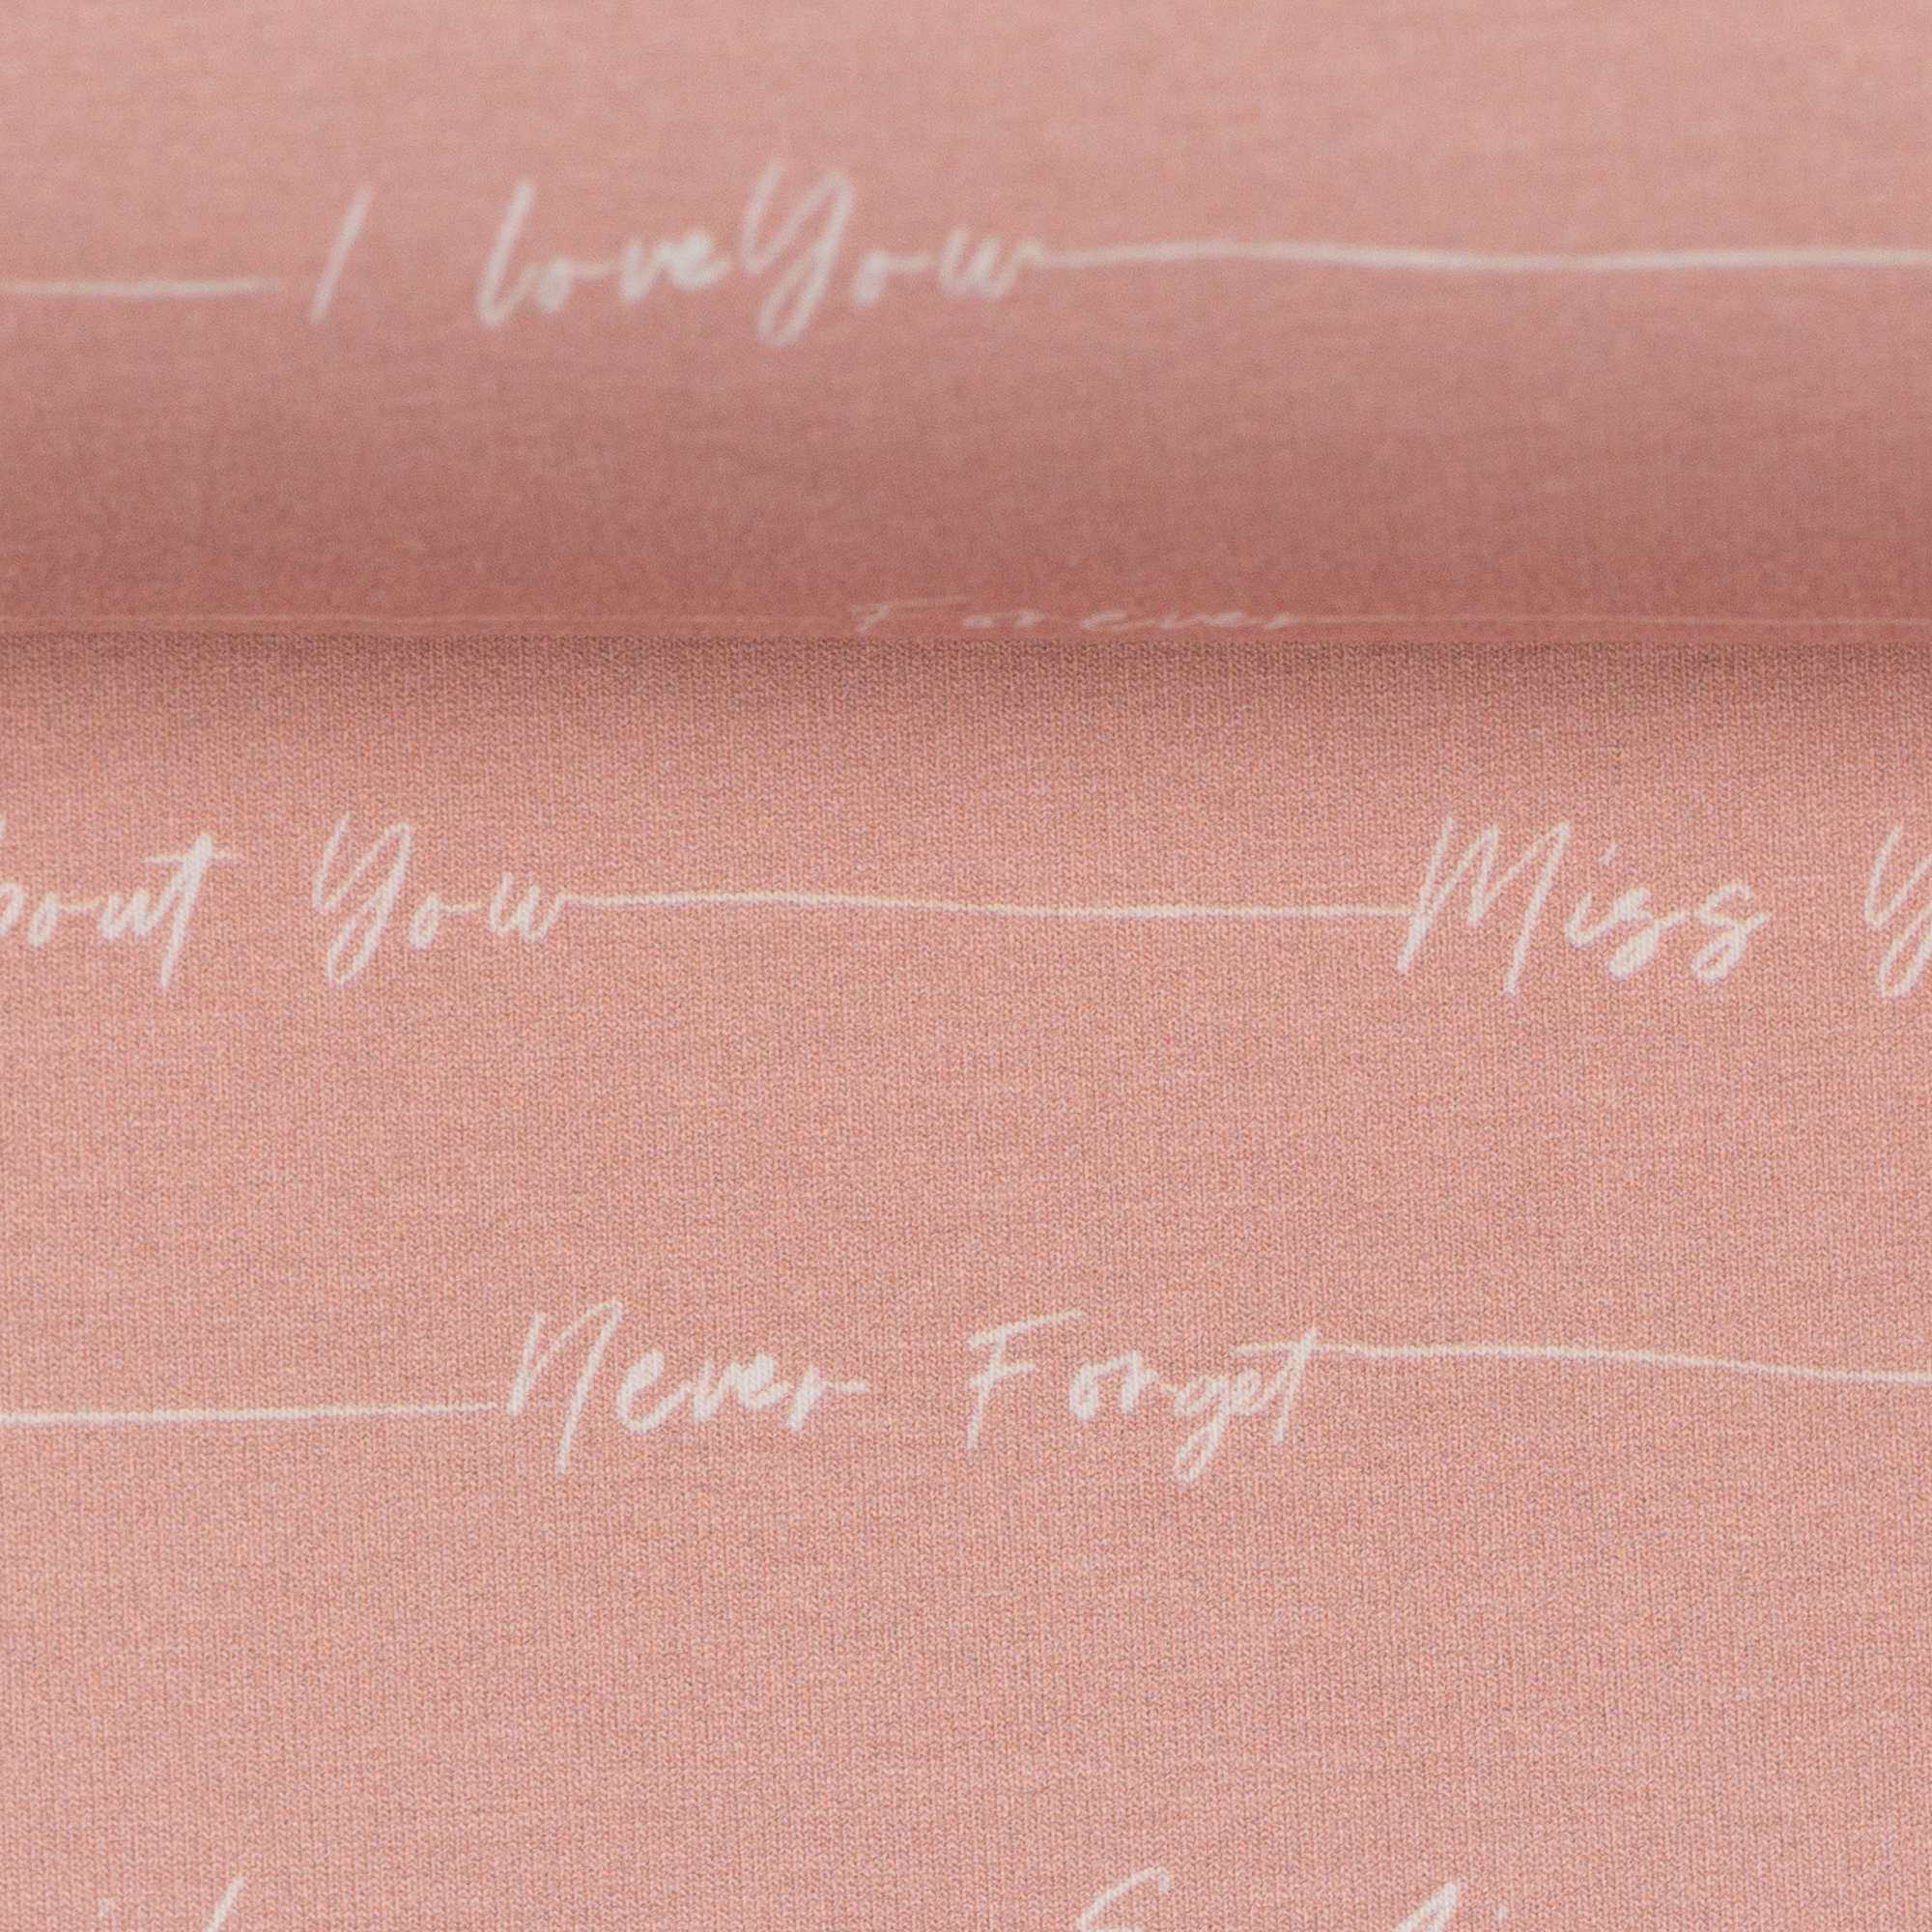 I love You
Forever
You Miss
Never Forget